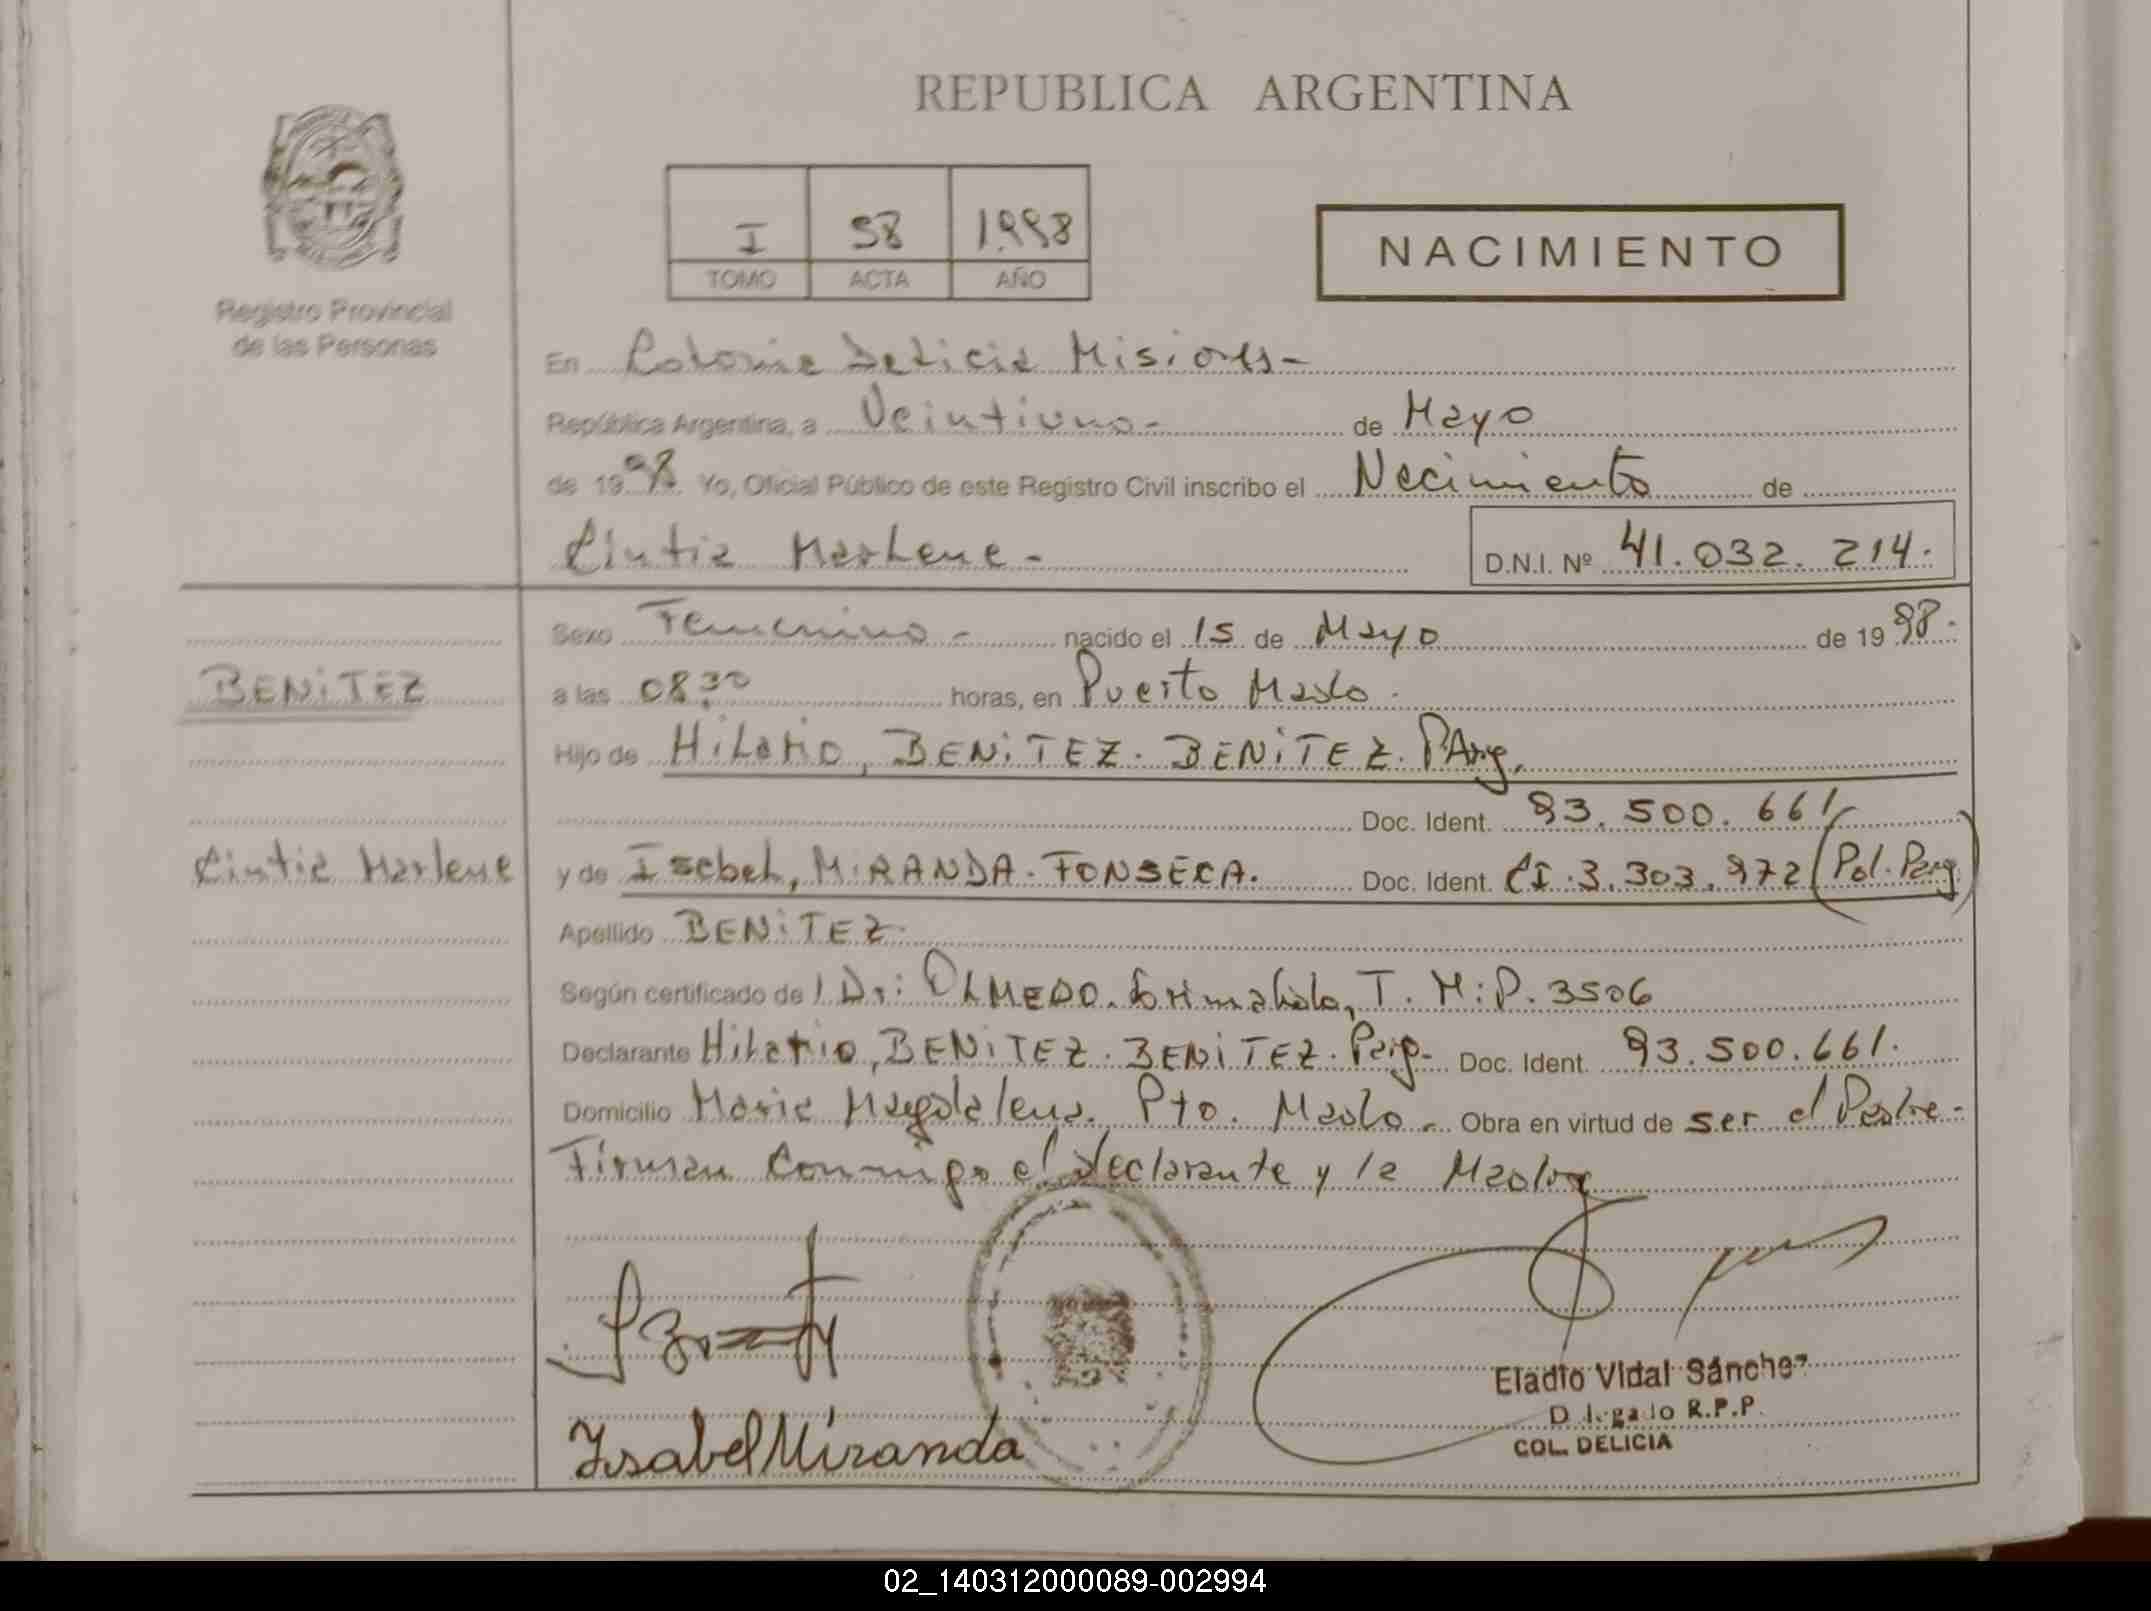 REPUBLICA ARGENTINA
Registro Provincial
de las Personas
I 58 1.998
TOMO ACTA AÑO
NACIMIENTO
En Colonia Delicia Misiones-
República Argentina, a Veintiuno- de Mayo
de 1998. Yo, Oficial Público de este Registro Civil inscribo el Nacimiento de
Cintia Marlene - D.N.I. Nº 41.032.214.
Sexo Femenino - nacido el 15 de Mayo de 1998.
BENiTEZ
a las 08:30 horas, en Puerto Mado.
Hijo de Hilario, BENiTEZ. BENiTEZ. PArg.
Doc. Ident. 93.500.661
Cintia Marlene
y de Isabel, MiRANDA. FONSECA. Doc. Ident. CI.3.303.972 (Pol. Parg)
Apellido BENiTEZ.
Según certificado de / Dr: OLMEDO. T. M:P. 3506
Declarante Hilario, BENiTEZ. BENiTEZ. Parg- Doc. Ident. 93.500.661.
Domicilio Maria Magdalena. Pto. Mado - Obra en virtud de ser el Padre-
Firman conmigo el declarante y la Madre
Isabel Miranda
Eladio Vidal Sánchez
Delegado R.P.P.
COL. DELICIA
02_140312000089-002994